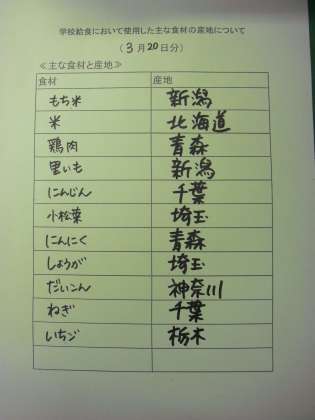 学校給食において使用した主な食材の産地について
(3月20日分)
≪主な食材と産地≫
食材 産地
もち米 新潟
米 北海道
鶏肉 青森
里いも 新潟
にんじん 千葉
小松菜 埼玉
にんにく 青森
しょうが 埼玉
だいこん 神奈川
ねぎ 千葉
いちご 栃木